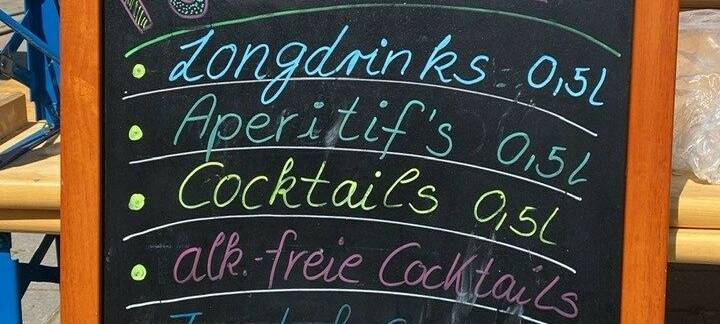 Longdrinks 0,5l
Aperitif's 0,5l
Cocktails 0,5l
alk.-freie Cocktails